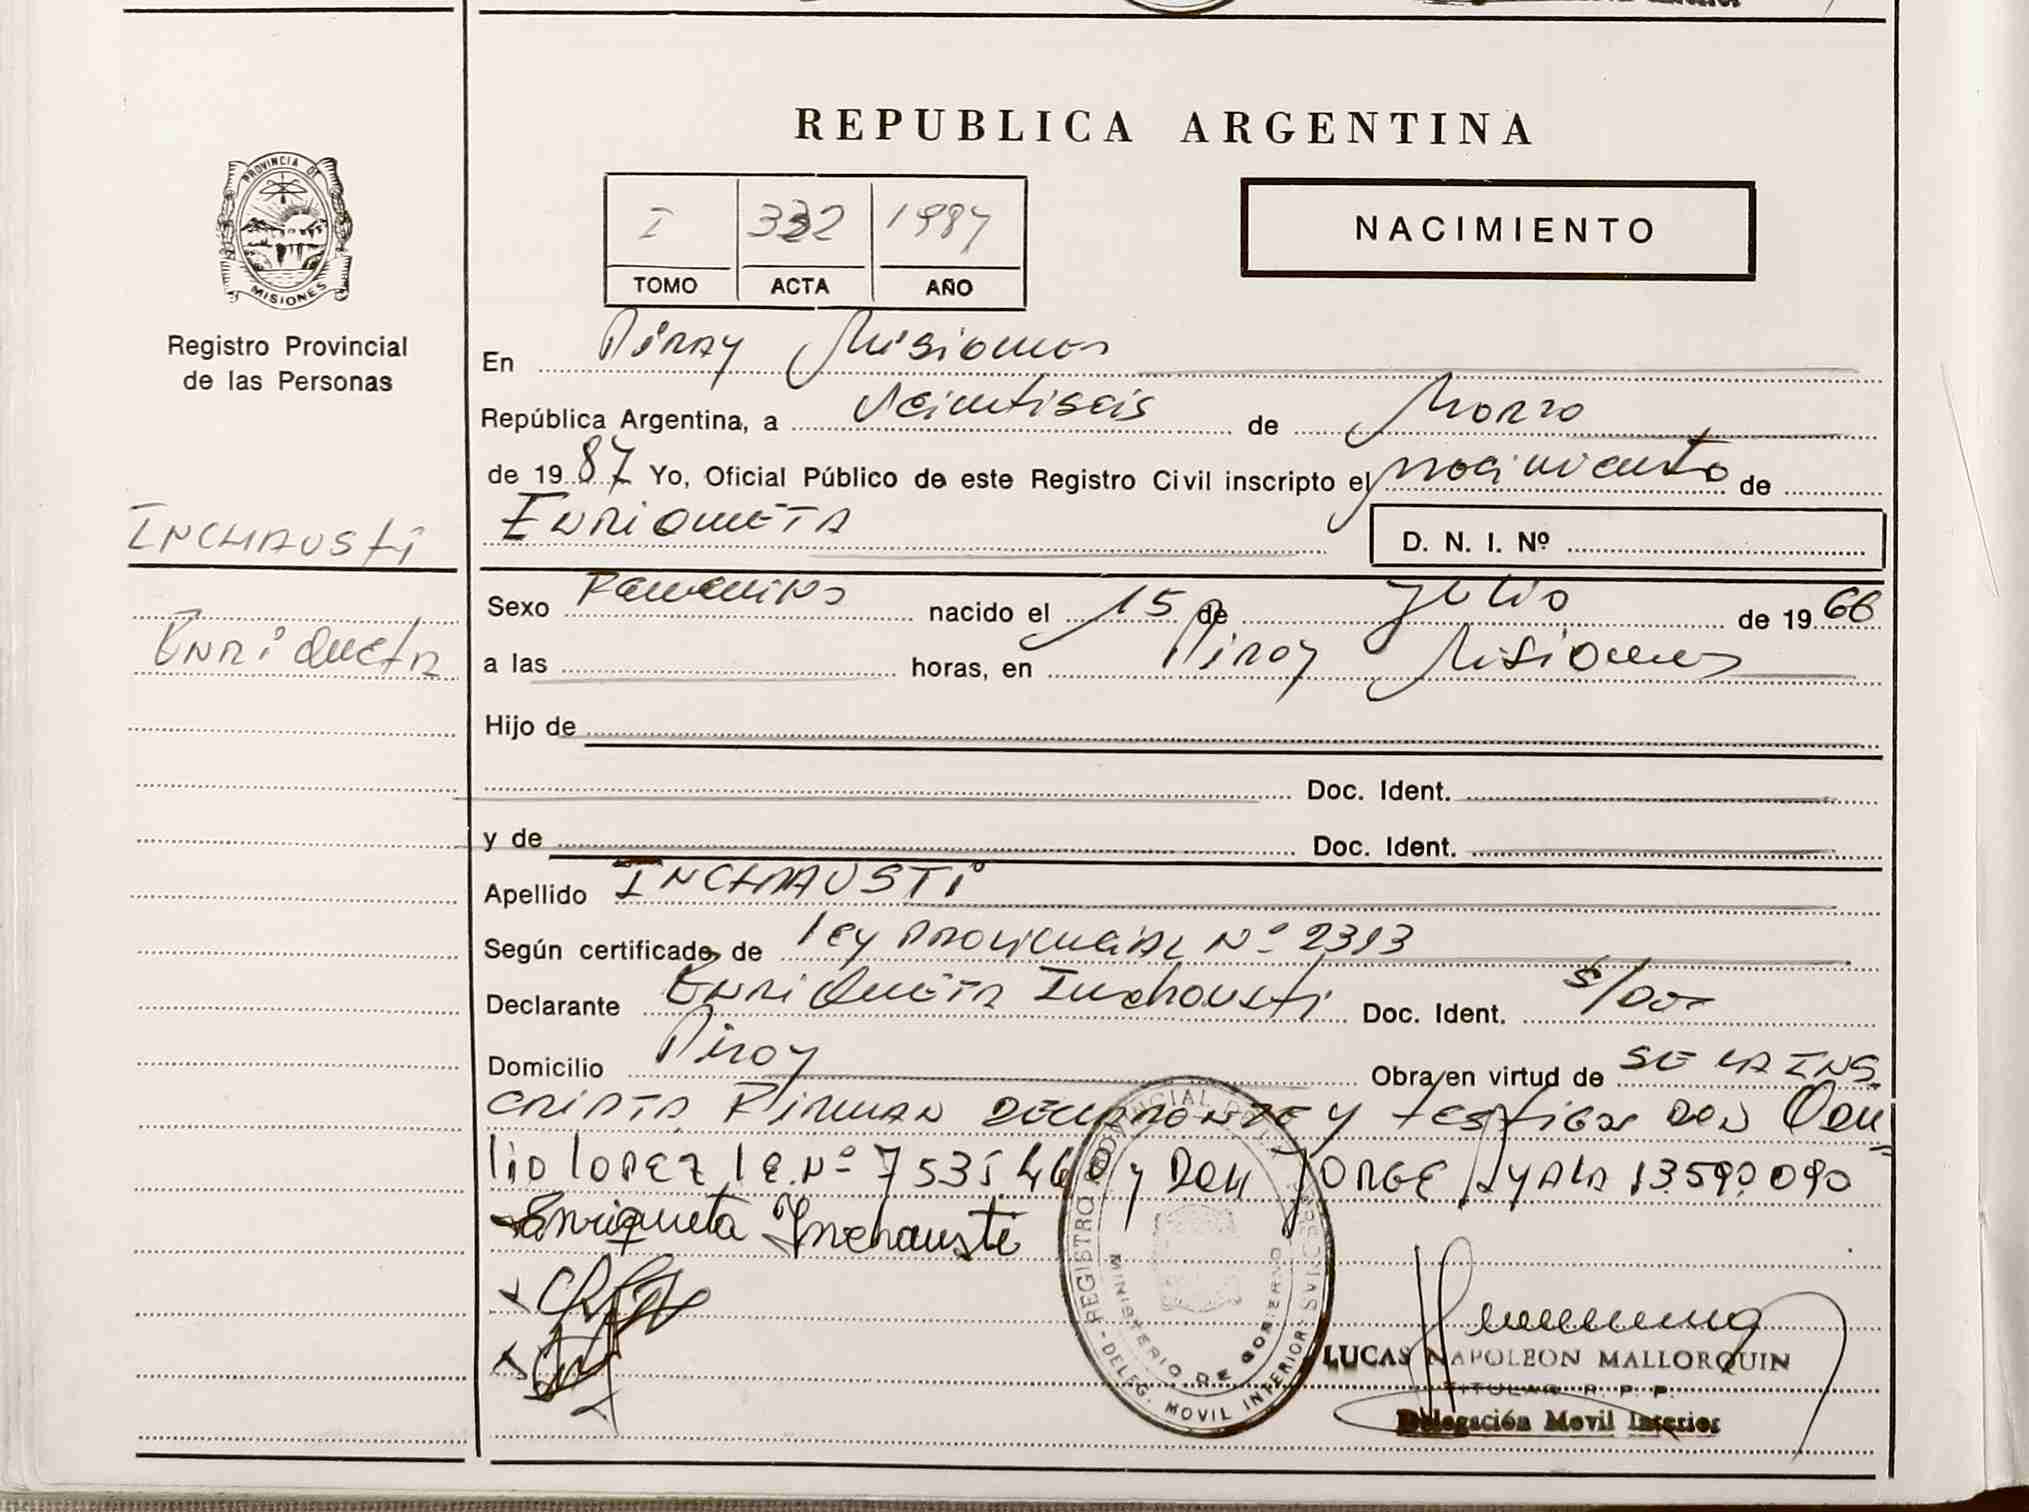 REPUBLICA ARGENTINA
PROVINCIA DE
MISIONES
I 332 1987
TOMO ACTA AÑO
NACIMIENTO
Registro Provincial
de las Personas
En Piray Misiones
República Argentina, a veintiseis de Marzo
de 19 87 Yo, Oficial Público de este Registro Civil inscripto el nacimiento de
INCHAUSTI
ENRIQUETA
D. N. I. Nº
Enriqueta
Sexo Femenino nacido el 15 de Julio de 19 66
a las horas, en Piray Misiones
Hijo de
Doc. Ident.
y de Doc. Ident.
Apellido INCHAUSTI
Según certificado de ley provincial Nº 2313
Declarante Enriqueta Inchausti Doc. Ident. s/doc
Domicilio Piray Obra en virtud de SE LA INS
CRIPTA FIRMAN DECLARANTE y testigos DON Odi
lio LOPEZ L.E. Nº 7535460 y DON JORGE AyALA 13.590.090
Enriqueta Inchausti
REGISTRO PROVINCIAL DE LAS PERSONAS
MINISTERIO DE GOBIERNO
DELEG. MOVIL INTERIOR
LUCAS NAPOLEON MALLORQUIN
TITULAR R. P. P.
Delegación Movil Interior